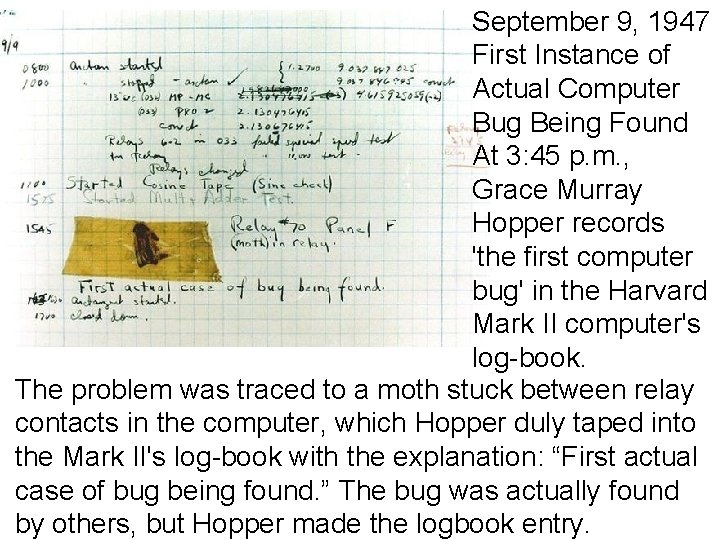 9/9
0800 antan started
1000 " stopped - antan ✓ { 1.2700 9.037 847 025
9.037 846 995 conect
13"uc (032) MP - MC 4.615925059(-2)
(033) PRO 2 2.130476415
conect 2.130676415
Relays 6-2 in 033 failed special speed test
in Relay " 10,000 test.
Relays changed
1100 Started Cosine Tape (Sine check)
1525 Started Mult + Adder Test.
1545 Relay #70 Panel F
(moth) in relay.
First actual case of bug being found.
antangent started.
1700 closed down.
September 9, 1947
First Instance of
Actual Computer
Bug Being Found
At 3:45 p.m. ,
Grace Murray
Hopper records
'the first computer
bug' in the Harvard
Mark II computer's
log-book.
The problem was traced to a moth stuck between relay
contacts in the computer, which Hopper duly taped into
the Mark II's log-book with the explanation: “First actual
case of bug being found. ” The bug was actually found
by others, but Hopper made the logbook entry.